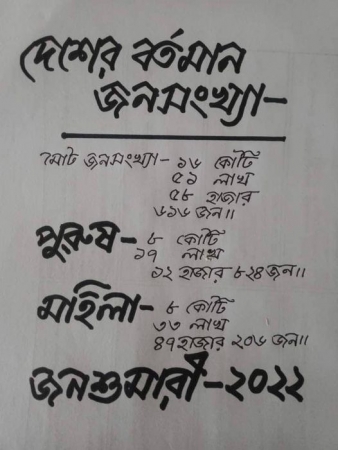 দেশের বর্তমান
জনসংখ্যা-
মোট জনসংখ্যা- ১৬ কোটি
৫১ লাখ
৫৮ হাজার
৬১৬ জন॥
পুরুষ- ৮ কোটি
১৭ লাখ
১২ হাজার ৮২৪ জন॥
মাহিলা- ৮ কোটি
৩৩ লাখ
৪৭ হাজার ২০৬ জন॥
জনশুমারী-২০২২